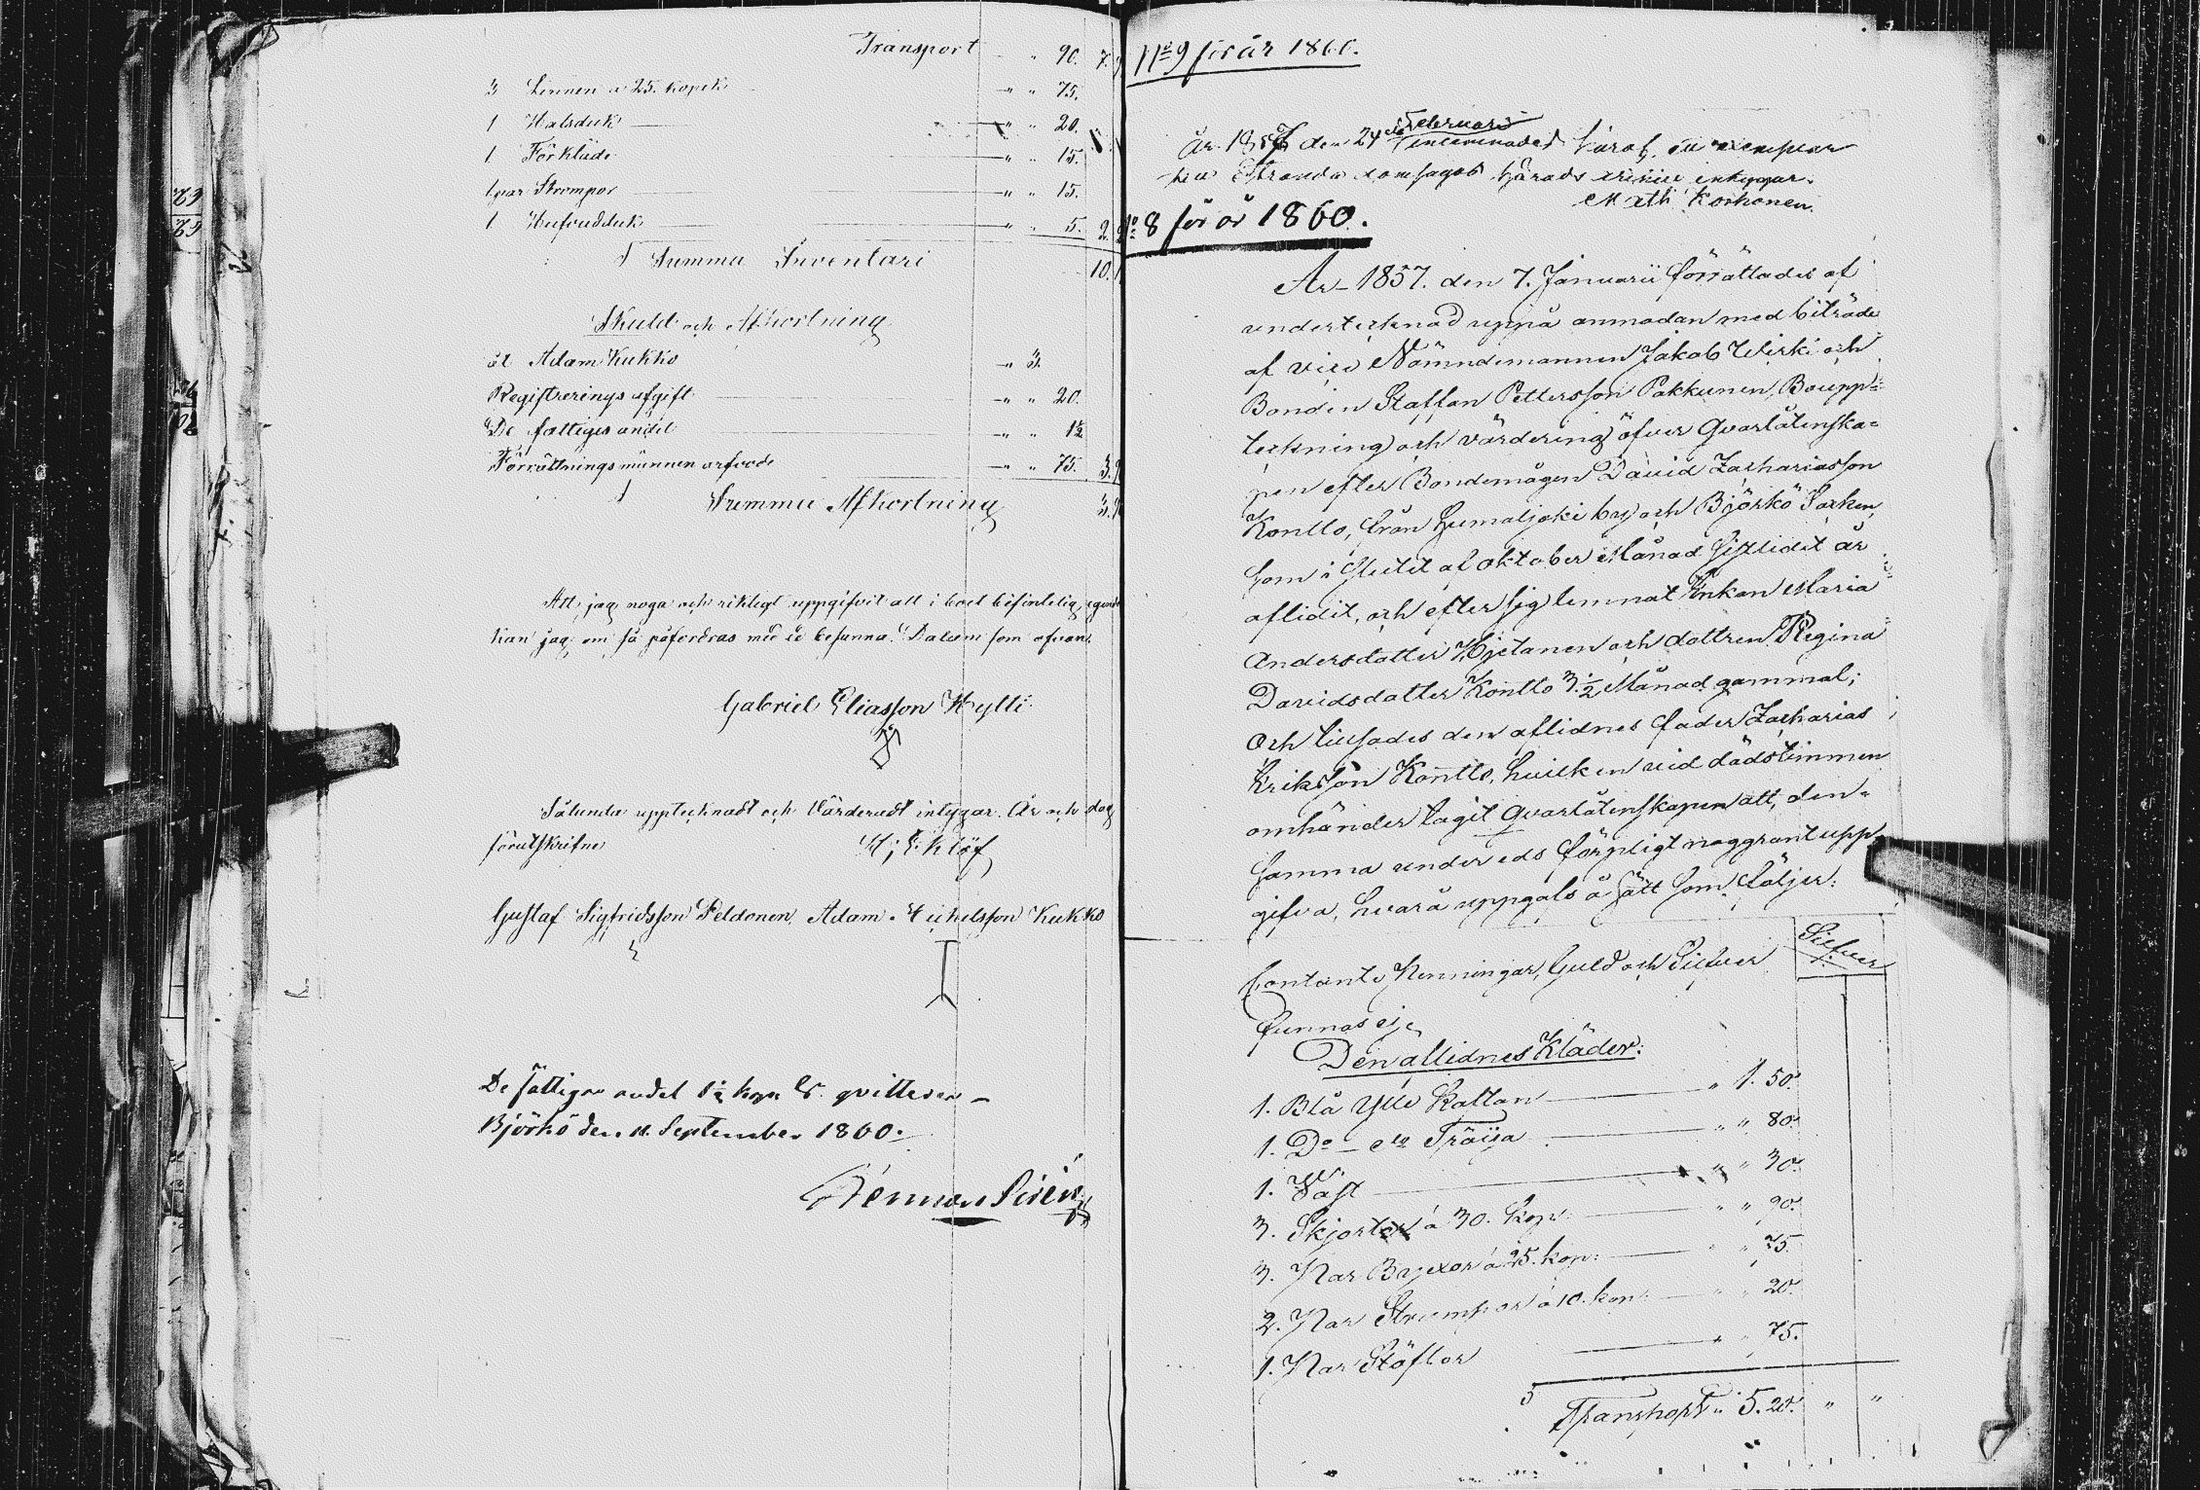 Transport " 90. 7.
3 Linnen a 25. kopek " " 75.
1 Halsduk " " 20.
1 Förkläde " " 15.
1 par Strumpor " " 15.
1 Hufvudduk " " 5. 2.
Summa Inventari 10.
Skuld och Afkortning
åt Adam Kukko " 3.
Registrerings afgift " " 20.
De fattiges andel " " 1½
Förrättningsmännen arfvode " " 75. 3.
Summa Afkortning 3.
Att jag noga och riktigt uppgifvit allt i boet befintelig egendo
kan jag om så påfordras med ed besanna. Datum som ofvan.
Gabriel Eliasson Hylli
Sålunda upptecknadt och Värderadt intygar. År och dag
förutskrifne H; Eklöf
Gustaf Sigfridsson Peldonen, Adam Michelsson Kukko
De fattiges andel 1½ kop. S. qvitteras
Björkö den 11. September 1860.
Herman Sirén
No 9 för år 1860.
År 1857 den 24 Februarii inlemnades häraf ett exemplar
till Stranda domsagas Härads arkiv, intygar.
Math Korhonen.
No 8 för år 1860.
År 1857. den 7. Januarii förrättades af
undertecknad uppå anmodan med biträde
af vice Nämndemannen Jakob Wirki och
Bonden Staffan Pettersson Pakkunen, Boupp=
teckning och värdering öfver Qvarlåtenska=
pen efter Bondemågen David Zachariasson
Kontto, från Humaljoki by och Björkö Socken,
som i slutet af Oktober Månad sistlidit år
aflidit, och efter sig lemnat Enkan Maria
Andersdotter Hjetanen och dottren Regina
Davidsdotter Kontto 3½ Månad gammal;
Och tillsades den aflidnes fader Zacharias
Eriksson Kontto, hvilken vid dödstimmen
omhänder tagit Qvarlåtenskapen att, den=
samma under eds förpligt noggrant upp
gifva, hvarå uppgafs å sätt som följer:
Contante Penningar, Guld och Silfver Silfver
funnos ej.
Den aflidnes Kläder:
1. Blå Ylle Kaftan " 1. 50.
1. Do do Tröija " " 80.
1. Väst " " 30.
3. Skjortor á 30. Kop: " " 90.
3. Par Byxor á 25. kop: " " 75.
2. Par Strumpor á 10. kop: " " 20.
1. Par Stöflor " " 75.
Transport " 5. 20. " "